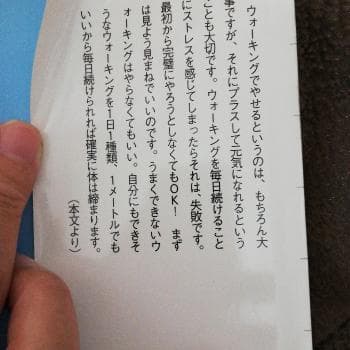 ウォーキングでやせるというのは、もちろん大
事ですが、それにプラスして元気になれるという
ことも大切です。ウォーキングを毎日続けること
にストレスを感じてしまったらそれは、失敗です。
最初から完璧にやろうとしなくてもOK！　まず
は見よう見まねでいいのです。うまくできないウ
ォーキングはやらなくてもいい。自分にもできそ
うなウォーキングを1日1種類、1メートルでも
いいから毎日続けられれば確実に体は締まります。
（本文より）